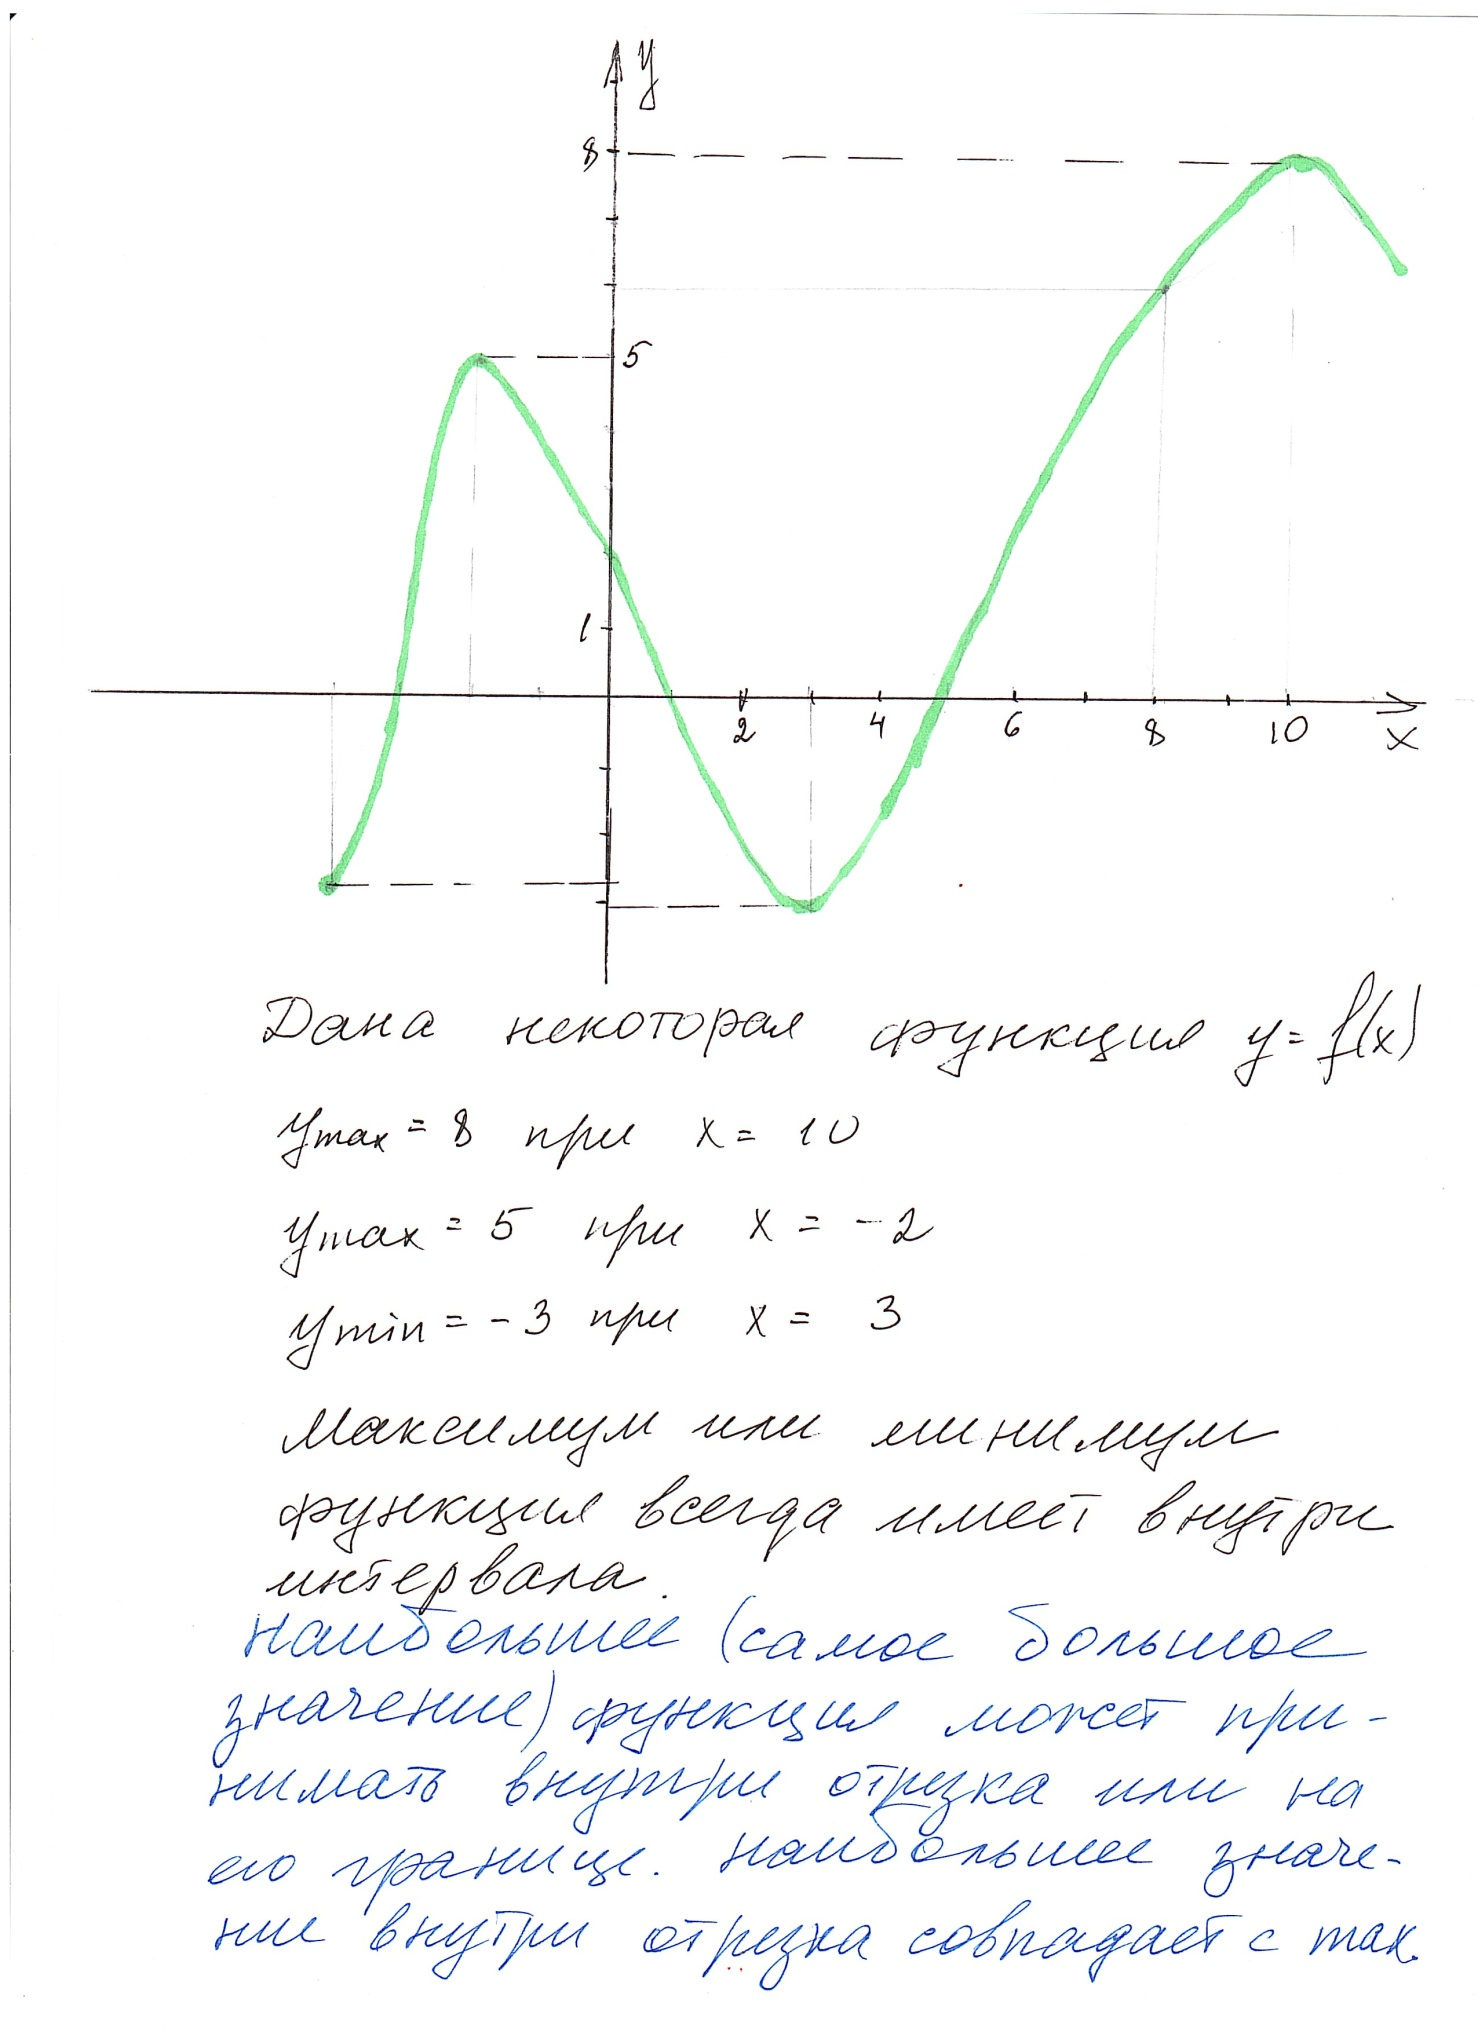 y
8
5
1
2 4 6 8 10 x
Дана некоторая функция y = f(x)
y max = 8 при x = 10
y max = 5 при x = -2
y min = -3 при x = 3
Максимум или минимум
функция всегда имеет внутри
интервала.
Наибольшее (самое большое
значение) функция может при-
нимать внутри отрезка или на
его границе. Наибольшее значе-
ние внутри отрезка совпадает с max.